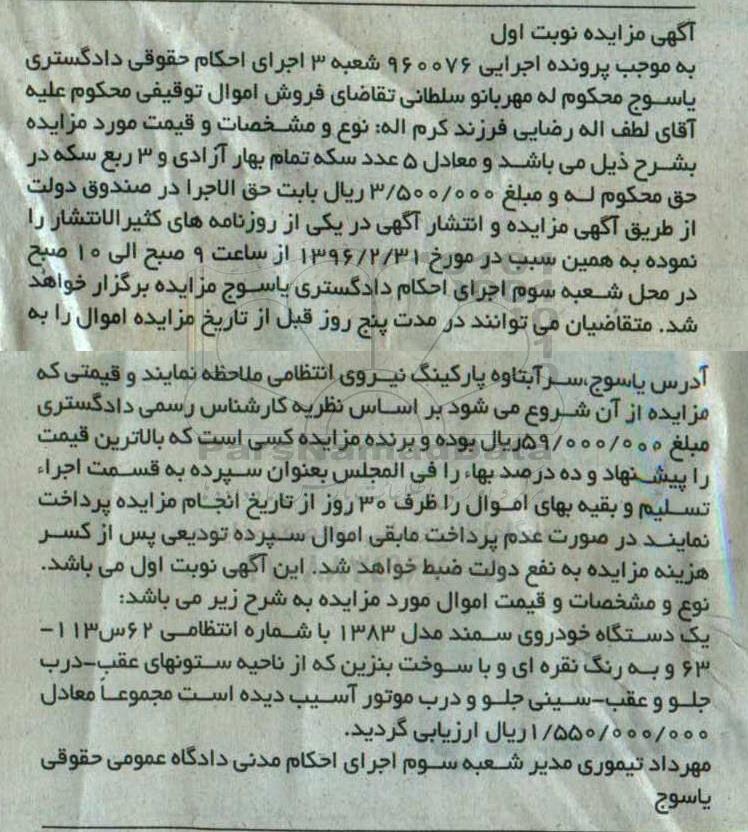 آگهی مزایده نوبت اول
به موجب پرونده اجرایی ۹۶۰۰۷۶ شعبه ۳ اجرای احکام حقوقی دادگستری
یاسوج محکوم له مهربانو سلطانی تقاضای فروش اموال توقیفی محکوم علیه
آقای لطف اله رضایی فرزند کرم اله: نوع و مشخصات و قیمت مورد مزایده
بشرح ذیل می باشد و معادل ۵ عدد سکه تمام بهار آزادی و ۳ ربع سکه در
حق محکوم له و مبلغ ۳/۵۰۰/۰۰۰ ریال بابت حق الاجرا در صندوق دولت
از طریق آگهی مزایده و انتشار آگهی در یکی از روزنامه های کثیرالانتشار را
نموده به همین سبب در مورخ ۱۳۹۶/۲/۳۱ از ساعت ۹ صبح الی ۱۰ صبح
در محل شعبه سوم اجرای احکام دادگستری یاسوج مزایده برگزار خواهد
شد. متقاضیان می توانند در مدت پنج روز قبل از تاریخ مزایده اموال را به
آدرس یاسوج،سرآبتاوه پارکینگ نیروی انتظامی ملاحظه نمایند و قیمتی که
مزایده از آن شروع می شود بر اساس نظریه کارشناس رسمی دادگستری
مبلغ ۵۹/۰۰۰/۰۰۰ریال بوده و برنده مزایده کسی است که بالاترین قیمت
را پیشنهاد و ده درصد بهاء را فی المجلس بعنوان سپرده به قسمت اجراء
تسلیم و بقیه بهای اموال را ظرف ۳۰ روز از تاریخ انجام مزایده پرداخت
نمایند در صورت عدم پرداخت مابقی اموال سپرده تودیعی پس از کسر
هزینه مزایده به نفع دولت ضبط خواهد شد. این آگهی نوبت اول می باشد.
نوع و مشخصات و قیمت اموال مورد مزایده به شرح زیر می باشد:
یک دستگاه خودروی سمند مدل ۱۳۸۳ با شماره انتظامی ۶۲س۱۱۳-
۶۳ و به رنگ نقره ای و با سوخت بنزین که از ناحیه ستونهای عقب-درب
جلو و عقب-سینی جلو و درب موتور آسیب دیده است مجموعاً معادل
۱/۵۵۰/۰۰۰/۰۰۰ریال ارزیابی گردید.
مهرداد تیموری مدیر شعبه سوم اجرای احکام مدنی دادگاه عمومی حقوقی
یاسوج
ParsNamadData